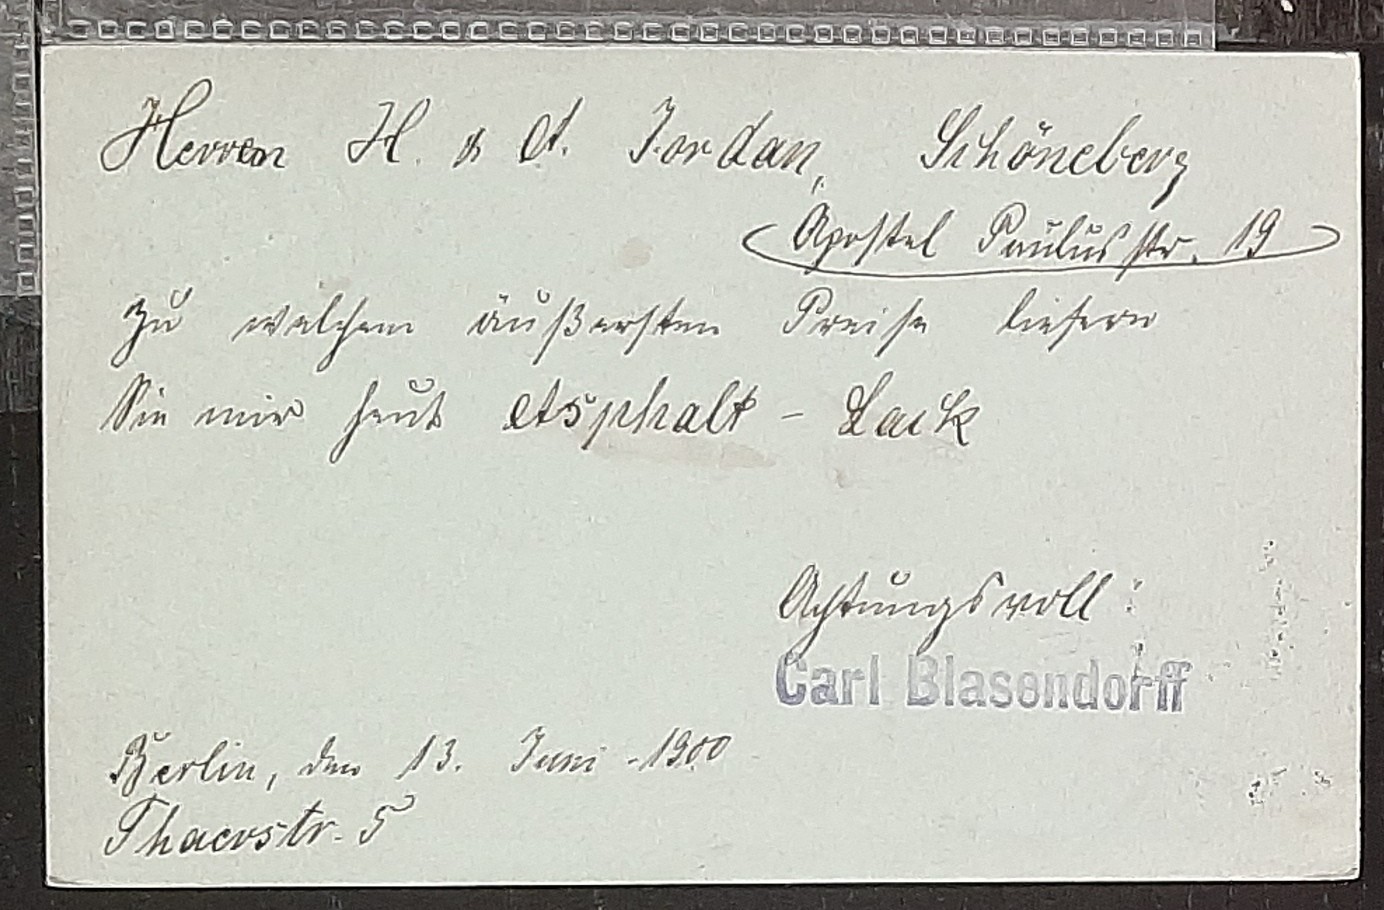 Herren H. & A. Jordan, Schöneberg
Apostel Paulusstr. 19
Zu welchem äußersten Preise liefern
Sie mir heut Asphalt - Lack
Achtungsvoll:
Carl Blasendorff
Berlin, den 13. Juni 1900
Thaerstr. 5